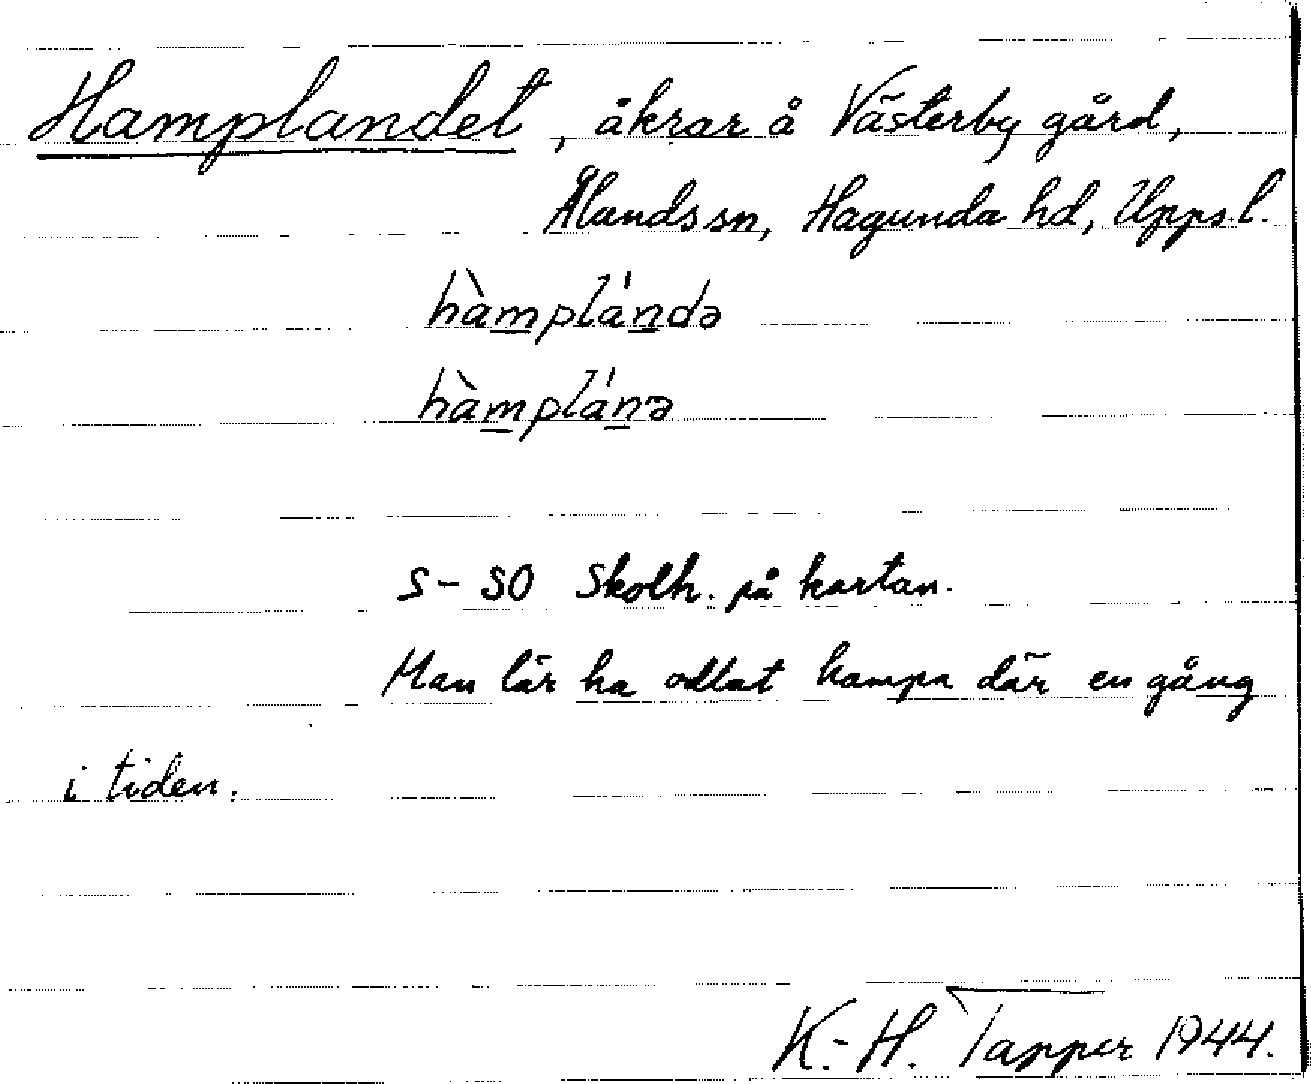 Hamplandet, åkrar å Västerby gård,
Ålands sn, Hagunda hd, Upps. l.
hàmplándə
hàmplánə
S–SO Skolh. på kartan.
Man lär ha odlat hampa där en gång
i tiden.
K.-H. Tapper 1944.